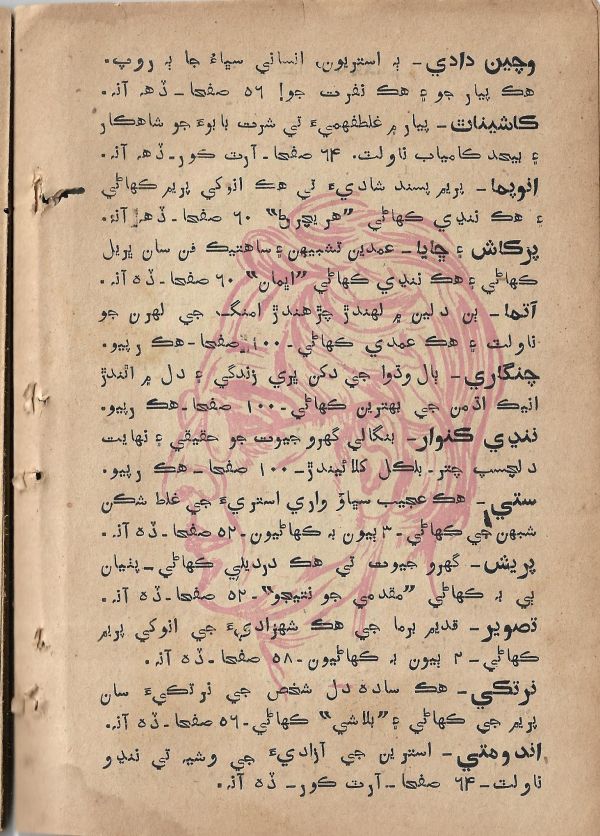 وڇين دادي- ٻه استريون، انساني سڀاءُ جا ٻه روپ.
هڪ پيار جو ۽ هڪ نفرت جو! ٥٦ صفحا- ڏهه آنه.
ڪاشيناٿ- پيار ۾ غلطفهميءَ تي شرت بابوءَ جو شاهڪار
۽ بيحد ڪامياب ناولٽ. ٦٤ صفحا- آرٽ ڪور- ڏهه آنه.
انوپما- پريم پسند شاديءَ تي هڪ انوکي پريم ڪهاڻي
۽ هڪ ننڍي ڪهاڻي ”هريچرڻ“ ٦٠ صفحا- ڏهه آنه.
پرڪاش ۽ ڇايا- عمدين تشبيهن ۽ ساهتيڪ فن سان ڀريل
ڪهاڻي ۽ هڪ ننڍي ڪهاڻي ”ايمان“ ٦٠ صفحا- ڏه آنه.
آتما- ٻن دلين ۾ لهندڙ چڙهندڙ امنگ جي لهرن جو
ناولٽ ۽ هڪ عمدي ڪهاڻي- ١٠٠ صفحا- هڪ رپيو.
چنگاري- ٻال وڌوا جي دکن ڀري زندگي ۽ دل ۾ اٿندڙ
انيڪ اڌمن جي بهترين ڪهاڻي- ١٠٠ صفحا- هڪ رپيو.
ننڍي ڪنوار- بنگالي گهرو جيوت جو حقيقي ۽ نهايت
دلچسپ چتر- بلڪل کلائيندڙ- ١٠٠ صفحا- هڪ رپيو.
ستي- هڪ عجيب سڀاوَ واري استريءَ جي غلط شڪن
شبهن جي ڪهاڻي- ٣ ٻيون به ڪهاڻيون- ٥٢ صفحا- ڏه آنه.
پريش- گهرو جيوت تي هڪ دردیلي ڪهاڻي- پنيان
ٻي به ڪهاڻي ”مقدمي جو نتيجو“- ٥٢ صفحا- ڏه آنه.
تصوير- قديم برما جي هڪ شهزاديءَ جي انوکي پريم
ڪهاڻي- ٢ ٻيون به ڪهاڻيون- ٥٨ صفحا- ڏه آنه.
نرتڪي- هڪ ساده دل شخص جي نرتڪيءَ سان
پريم جي ڪهاڻي ۽ ”بلاشي“ ڪهاڻي- ٥٦ صفحا- ڏه آنه.
اندومتي- استرين جي آزاديءَ جي وشيه تي ننڍو
ناولٽ- ٦٤ صفحا- آرٽ ڪور- ڏه آنه.